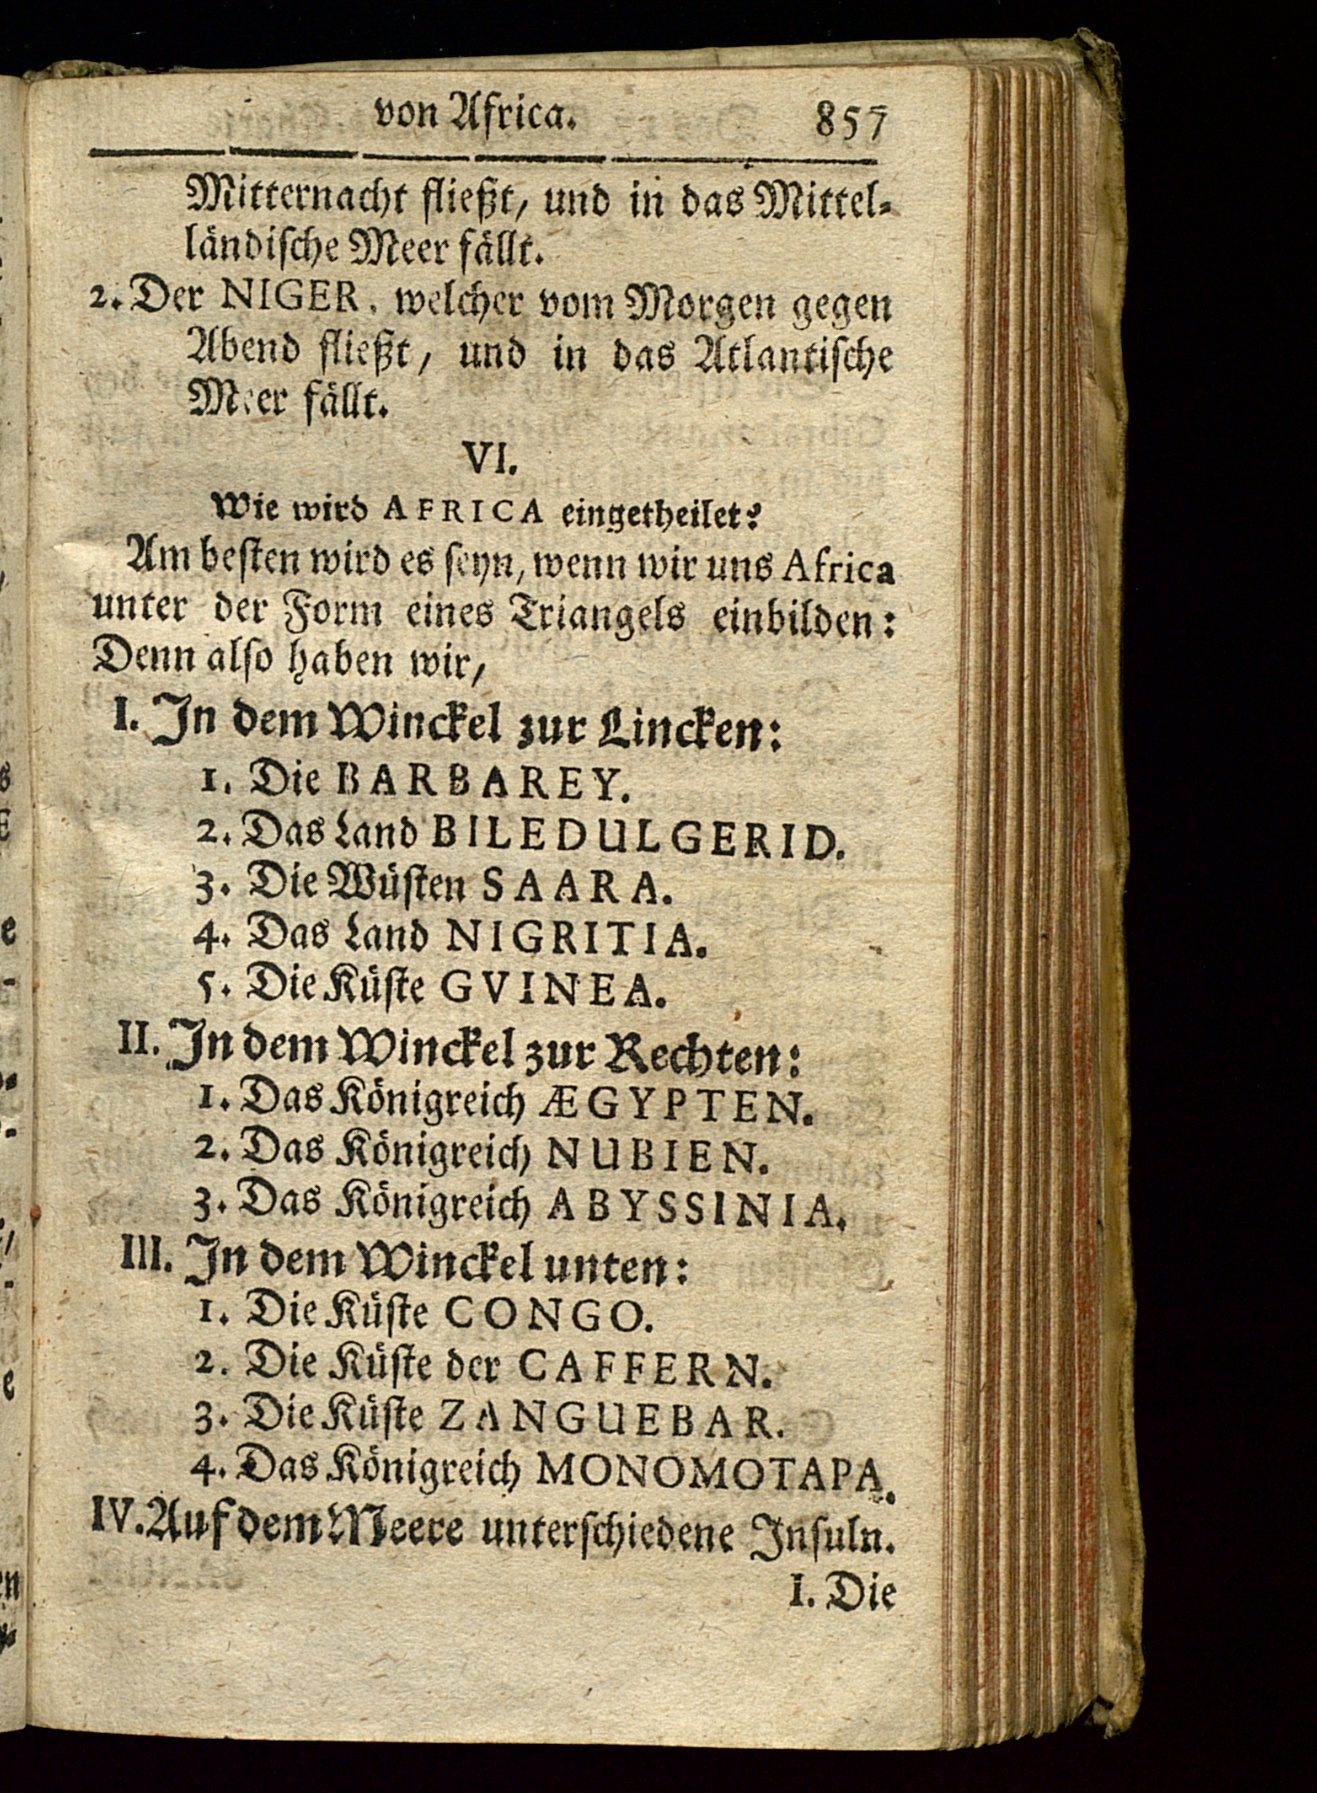 von Africa. 857
Mitternacht fließt, und in das Mittel-
ländische Meer fällt.
2. Der NIGER, welcher vom Morgen gegen
Abend fließt, und in das Atlantische
Meer fällt.
VI.
Wie wird AFRICA eingetheilet?
Am besten wird es seyn, wenn wir uns Africa
unter der Form eines Triangels einbilden:
Denn also haben wir,
I. In dem Winckel zur Lincken:
1. Die BARBAREY.
2. Das Land BILEDULGERID.
3. Die Wüsten SAARA.
4. Das Land NIGRITIA.
5. Die Küste GVINEA.
II. In dem Winckel zur Rechten:
1. Das Königreich ÆGYPTEN.
2. Das Königreich NUBIEN.
3. Das Königreich ABYSSINIA.
III. In dem Winckel unten:
1. Die Küste CONGO.
2. Die Küste der CAFFERN.
3. Die Küste ZANGUEBAR.
4. Das Königreich MONOMOTAPA.
IV. Auf dem Meere unterschiedene Insuln.
I. Die